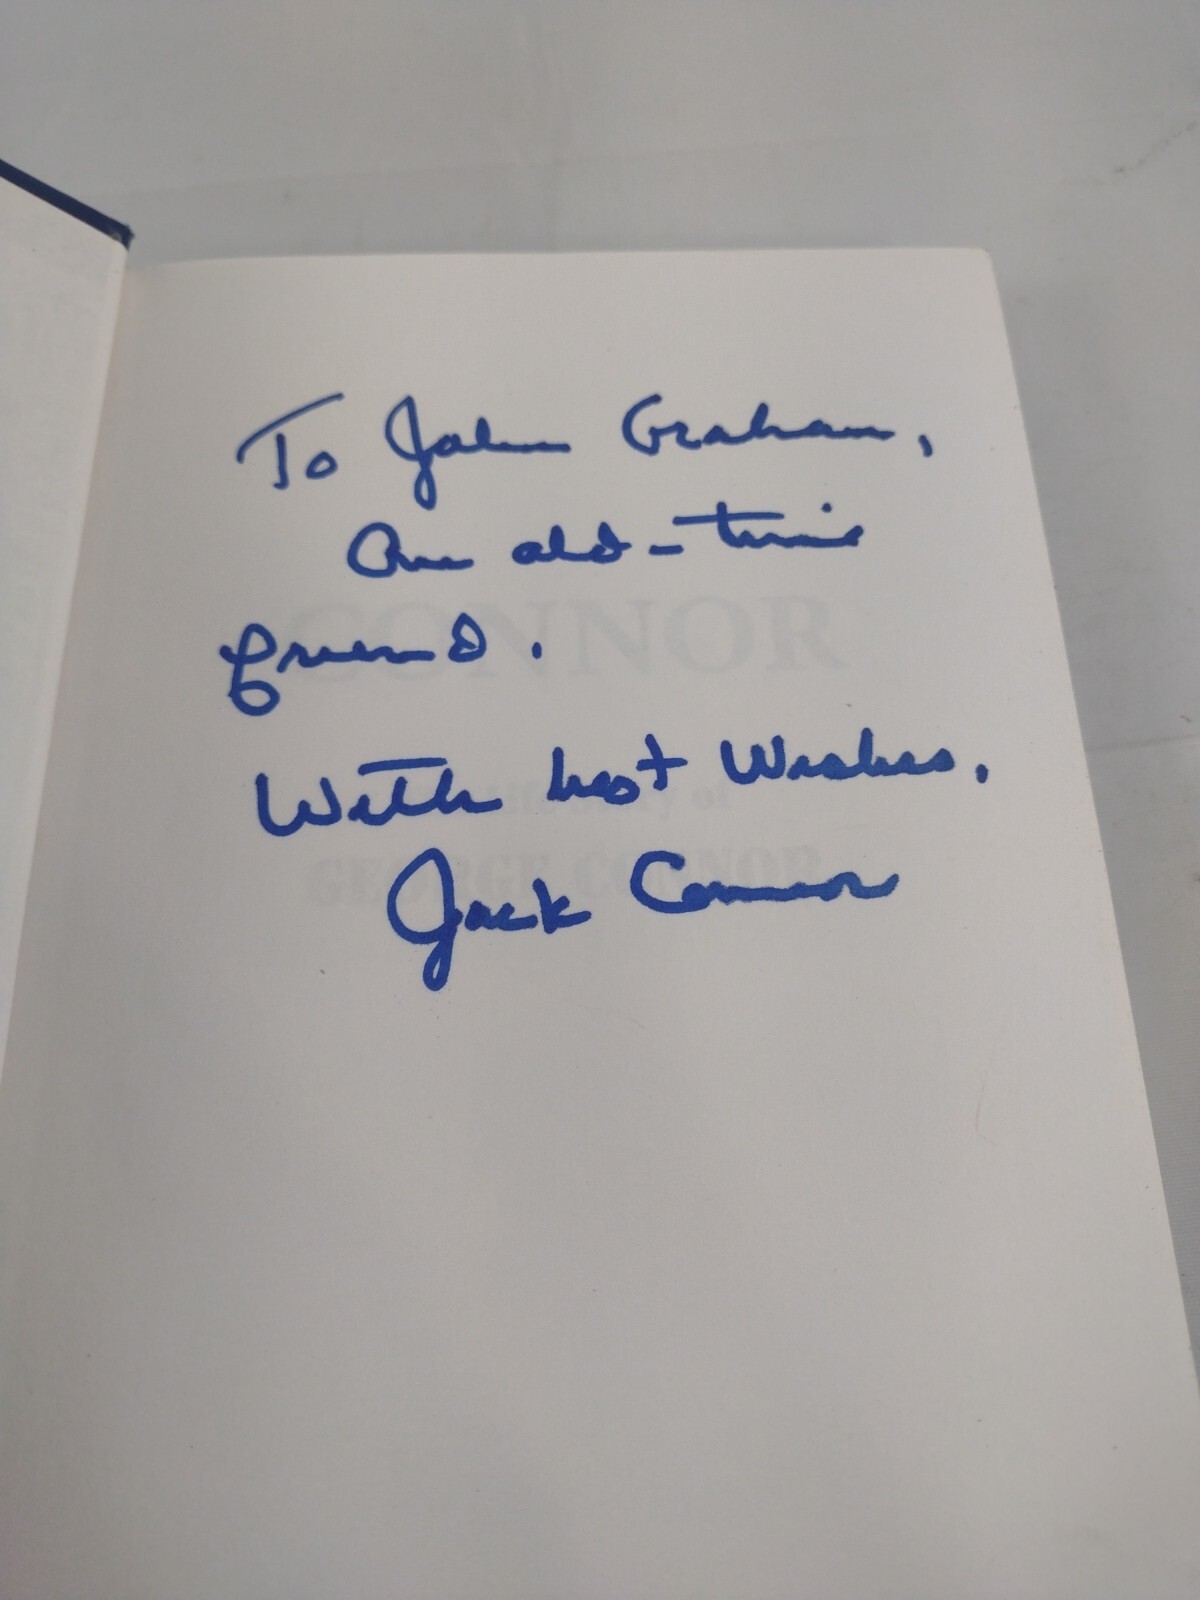 To John Graham,
An old-time
friend.
With best Wishes.
Jack Connor
CONNOR
of
GEORGE CONNOR